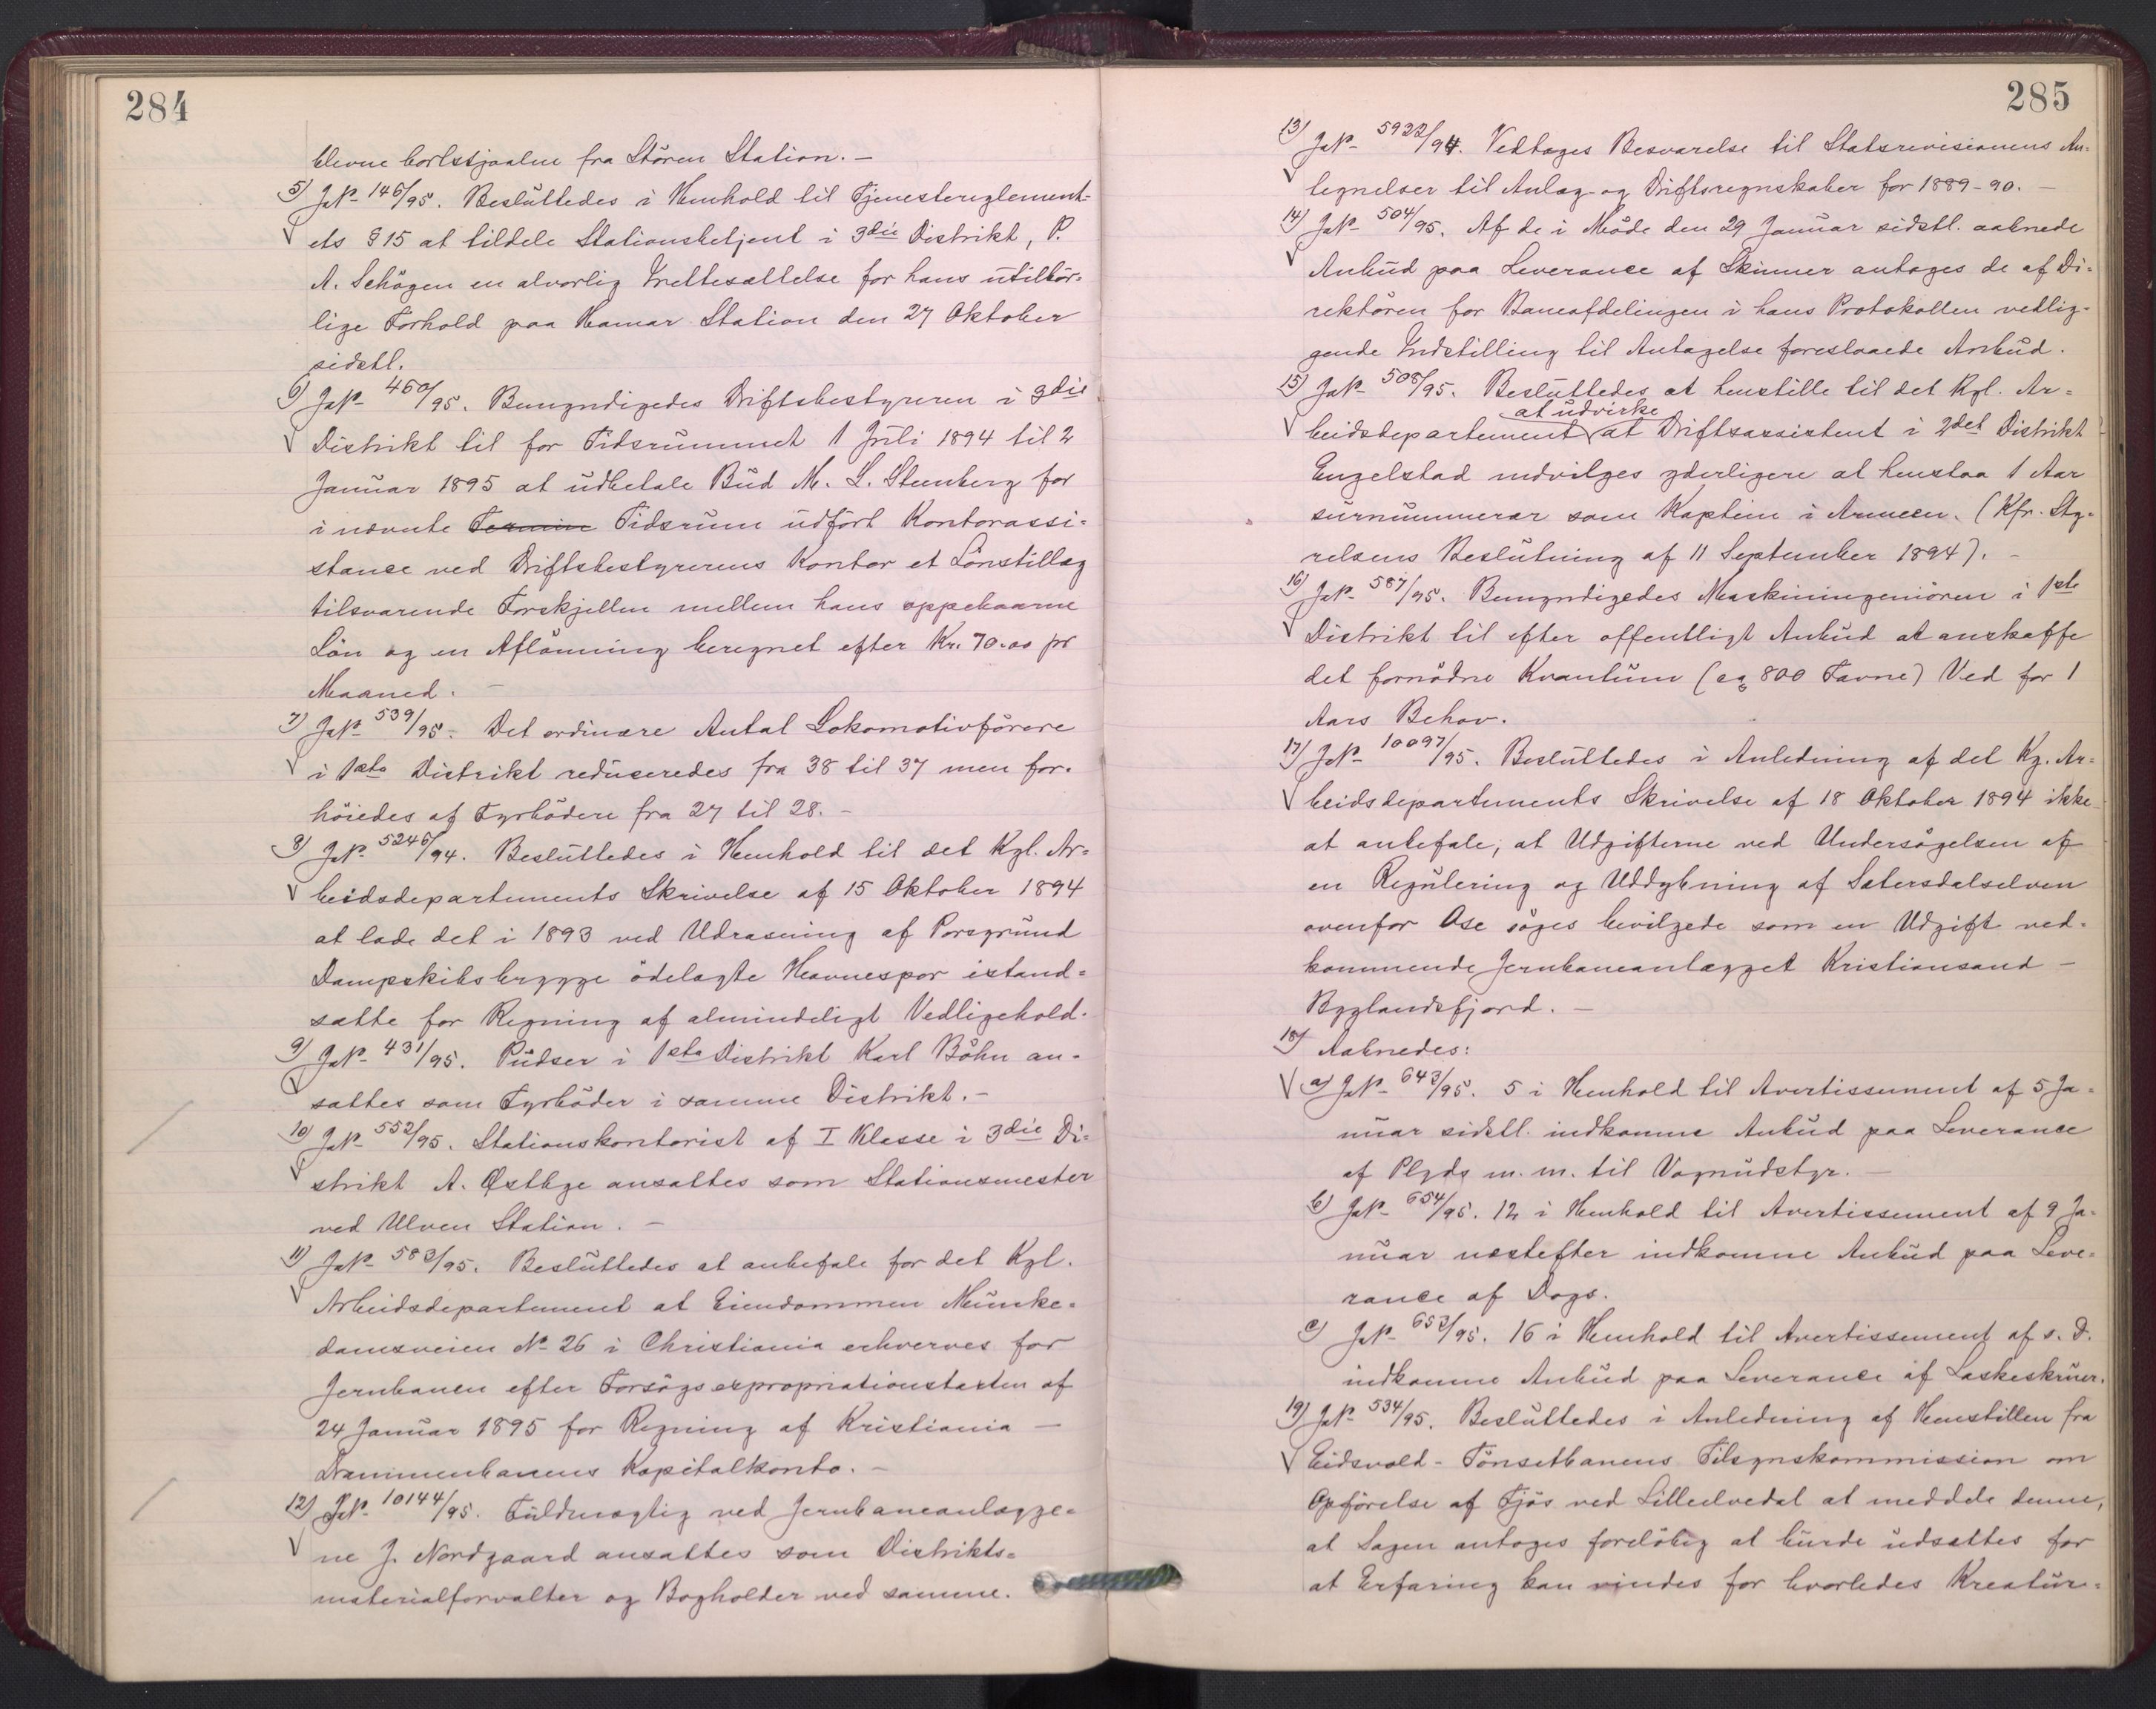 284
blevne bortstjaalne fra Stören Station. —
5) JN° 146/95. Besluttedes i Henhold til Tjenestereglement-
ets § 15 at tildele Stationsbetjent i 3die Distrikt, P.
A. Schögen en alvorlig Irettesættelse for hans utilbör-
lige Forhold paa Hamar Station den 27 Oktober
sidstl.
6) JN° 460/95. Bemyndigedes Driftsbestyreren i 3die
Distrikt til for Tidsrummet 1 Juli 1894 til 2
Januar 1895 at udbetale Bud M. L. Stenberg for
i nævnte Termin Tidsrum udfört Kontorassi-
stance ved Driftsbestyrerens Kontor et Lönstillæg
tilsvarende Forskjellen mellem hans oppebaarne
Lön og en Aflönning beregnet efter Kr. 70.00 pr
Maaned. —
7) JN° 539/95. Det ordinære Antal Lokomotivförere
i 1ste Distrikt reduceredes fra 38 til 37 men for-
höiedes af Fyrbödere fra 27 til 28. —
8) JN° 5246/94. Besluttedes i Henhold til det Kgl. Ar-
beidsdepartements Skrivelse af 15 Oktober 1894
at lade det i 1893 ved Udrasning af Porsgrund
Dampskibsbrygge ödelagte Havnespor istand-
sætte for Regning af almindeligt Vedligehold.
9) JN° 431/95. Pudser i 1ste Distrikt Karl Böhn an-
sættes som Fyrböder i samme Distrikt. —
10) JN° 552/95. Stationskontorist af I Klasse i 3die Di-
strikt A. Østbye ansættes som Stationsmester
ved Ulven Station. —
11) JN° 583/95. Besluttedes at anbefale for det Kgl.
Arbeidsdepartement at Eiendommen Munke-
damsveien N° 26 i Christiania erhverves for
Jernbanen efter Forsögsexpropriationstaxten af
24 Januar 1895 for Regning af Kristiania —
Drammenbanens Kapitalkonto. —
12) JN° 10144/95. Fuldmægtig ved Jernbaneanlægge-
ne J. Nordgaard ansættes som Distrikts-
materialforvalter og Bogholder ved samme.
285
13) JN° 5922/94. Vedtages Besvarelse til Statsrevisionens An-
tegnelser til Anlæg- og Driftsregnskaber for 1889-90. —
14) JN° 504/95. Af de i Möde den 29 Januar sidstl. aabnede
Anbud paa Leverance af Skinner antages de af Di-
rektören for Baneafdelingen i hans Protokollen vedlig-
gende Indstilling til Antagelse foreslaaede Anbud.
15) JN° 508/95. Besluttedes at henstille til det Kgl. Ar-
at udvirke
beidsdepartement at Driftsassistent i 2det Distrikt
Engelstad indvilges yderligere at henstaa 1 Aar
surnummerær som Kaptein i Armeen. (Kfr. Sty-
relsens Beslutning af 11 September 1894). —
16) JN° 587/95. Bemyndigedes Maskiningeniören i 1ste
Distrikt til efter offentligt Anbud at anskaffe
det fornödne Kvantum (ca 800 Favne) Ved for 1
Aars Behov.
17) JN° 10097/95. Besluttedes i Anledning af det Kg. Ar-
beidsdepartements Skrivelse af 18 Oktober 1894 ikke
at anbefale, at Udgifterne ved Undersögelsen af
en Regulering og Uddybning af Sætersdalselven
ovenfor Ose söges bevilgede som en Udgift ved-
kommende Jernbaneanlægget Kristiansand —
Byglandsfjord. —
18) Aabnedes:
a) JN° 643/95. 5 i Henhold til Avertissement af 5 Ja-
nuar sidstl. indkomne Anbud paa Leverance
af Plyds m. m. til Vognudstyr. —
b) JN° 654/95. 12 i Henhold til Avertissement af 9 Ja-
nuar næstefter indkomne Anbud paa Leve-
rance af Dogs.
c) JN° 652/95. 16 i Henhold til Avertissement af s. D.
indkomne Anbud paa Leverance af Laskeskruer.
19) JN° 534/95. Besluttedes i Anledning af Henstillen fra
Eidsvold - Tönsetbanens Tilsynskommission om
Opförelse af Fjös ved Lilleelvedal at meddele denne,
at Sagen antages forelöbig at burde udsættes for
at Erfaring kan vindes for hvorledes Kreatur-